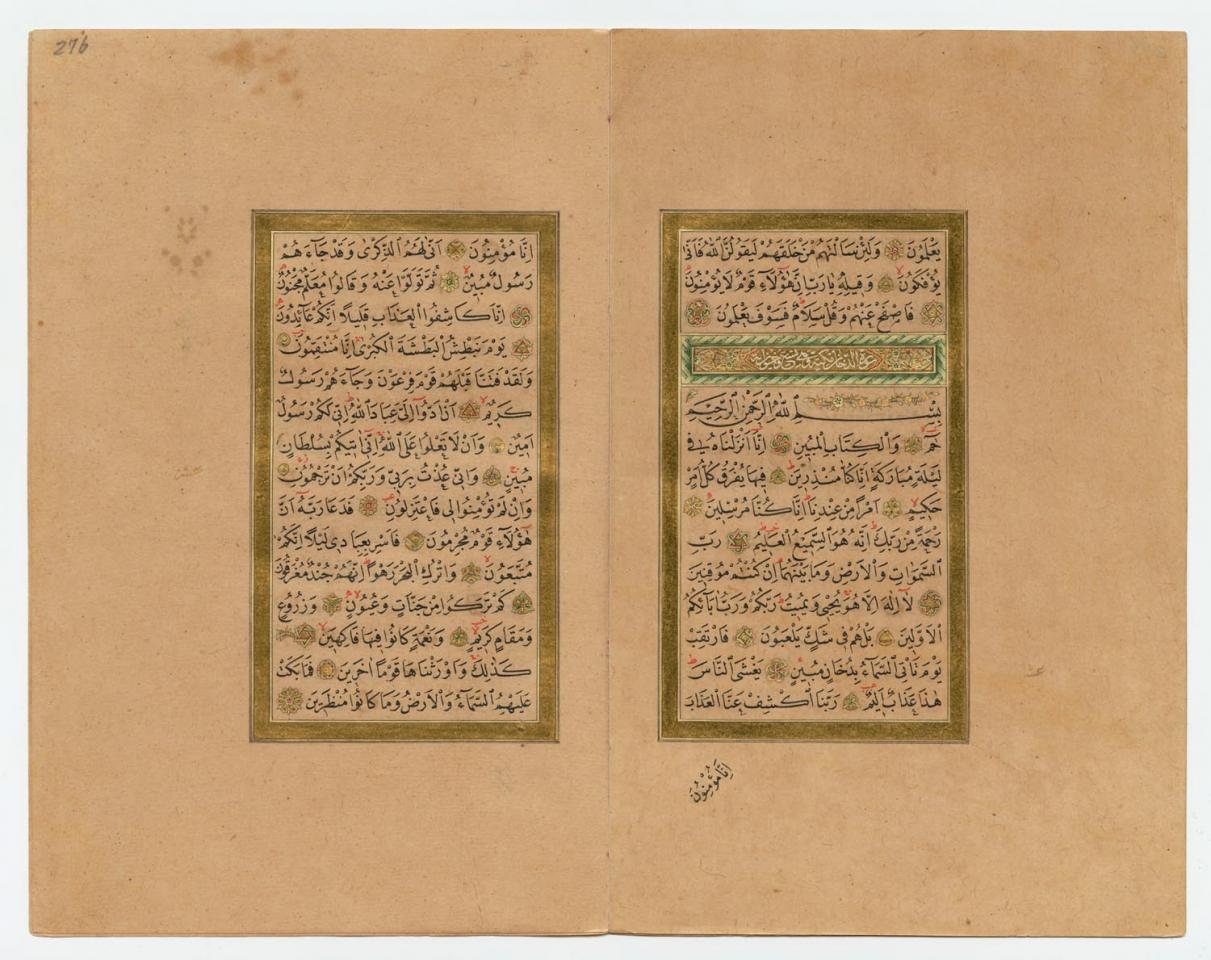 يَعْلَمُونَ وَلَئِنْ سَاَلْتَهُمْ مَنْ خَلَقَهُمْ لَيَقُولُنَّ اللّٰهُ فَاَنّٰى
يُؤْفَكُونَ وَقِيلِهٖ يَارَبِّ اِنَّ هٰؤُلَاءِ قَوْمٌ لَا يُؤْمِنُونَ
فَاصْفَحْ عَنْهُمْ وَقُلْ سَلَامٌ فَسَوْفَ يَعْلَمُونَ
الدخان مكية وهى
بِسْمِ اللّٰهِ الرَّحْمٰنِ الرَّحِيمِ
حٰمٓ وَالْكِتَابِ الْمُبِينِ اِنَّا اَنْزَلْنَاهُ فِى
لَيْلَةٍ مُبَارَكَةٍ اِنَّا كُنَّا مُنْذِرِينَ فِيهَا يُفْرَقُ كُلُّ اَمْرٍ
حَكِيمٍ اَمْرًا مِنْ عِنْدِنَا اِنَّا كُنَّا مُرْسِلِينَ
رَحْمَةً مِنْ رَبِّكَ اِنَّهُ هُوَ السَّمِيعُ الْعَلِيمُ رَبِّ
السَّمٰوَاتِ وَالْاَرْضِ وَمَا بَيْنَهُمَا اِنْ كُنْتُمْ مُوقِنِينَ
لَا اِلٰهَ اِلَّا هُوَ يُحْيٖى وَيُمِيتُ رَبُّكُمْ وَرَبُّ اٰبَائِكُمُ
الْاَوَّلِينَ بَلْ هُمْ فِى شَكٍّ يَلْعَبُونَ فَارْتَقِبْ
يَوْمَ تَاْتِى السَّمَاءُ بِدُخَانٍ مُبِينٍ يَغْشَى النَّاسَ
هٰذَا عَذَابٌ اَلِيمٌ رَبَّنَا اكْشِفْ عَنَّا الْعَذَابَ
اِنَّا مُؤْمِنُونَ
276
اِنَّا مُؤْمِنُونَ اَنّٰى لَهُمُ الذِّكْرٰى وَقَدْ جَاءَهُمْ
رَسُولٌ مُبِينٌ ثُمَّ تَوَلَّوْا عَنْهُ وَقَالُوا مُعَلَّمٌ مَجْنُونٌ
اِنَّا كَاشِفُوا الْعَذَابِ قَلِيلًا اِنَّكُمْ عَائِدُونَ
يَوْمَ نَبْطِشُ الْبَطْشَةَ الْكُبْرٰى اِنَّا مُنْتَقِمُونَ
وَلَقَدْ فَتَنَّا قَبْلَهُمْ قَوْمَ فِرْعَوْنَ وَجَاءَهُمْ رَسُولٌ
كَرِيمٌ اَنْ اَدُّوا اِلَىَّ عِبَادَ اللّٰهِ اِنِّى لَكُمْ رَسُولٌ
اَمِينٌ وَاَنْ لَا تَعْلُوا عَلَى اللّٰهِ اِنِّى اٰتِيكُمْ بِسُلْطَانٍ
مُبِينٍ وَاِنِّى عُذْتُ بِرَبِّى وَرَبِّكُمْ اَنْ تَرْجُمُونِ
وَاِنْ لَمْ تُؤْمِنُوا لِى فَاعْتَزِلُونِ فَدَعَا رَبَّهُ اَنَّ
هٰؤُلَاءِ قَوْمٌ مُجْرِمُونَ فَاَسْرِ بِعِبَادِى لَيْلًا اِنَّكُمْ
مُتَّبَعُونَ وَاتْرُكِ الْبَحْرَ رَهْوًا اِنَّهُمْ جُنْدٌ مُغْرَقُونَ
كَمْ تَرَكُوا مِنْ جَنَّاتٍ وَعُيُونٍ وَزُرُوعٍ
وَمَقَامٍ كَرِيمٍ وَنَعْمَةٍ كَانُوا فِيهَا فَاكِهِينَ
كَذٰلِكَ وَاَوْرَثْنَاهَا قَوْمًا اٰخَرِينَ فَمَا بَكَتْ
عَلَيْهِمُ السَّمَاءُ وَالْاَرْضُ وَمَا كَانُوا مُنْظَرِينَ